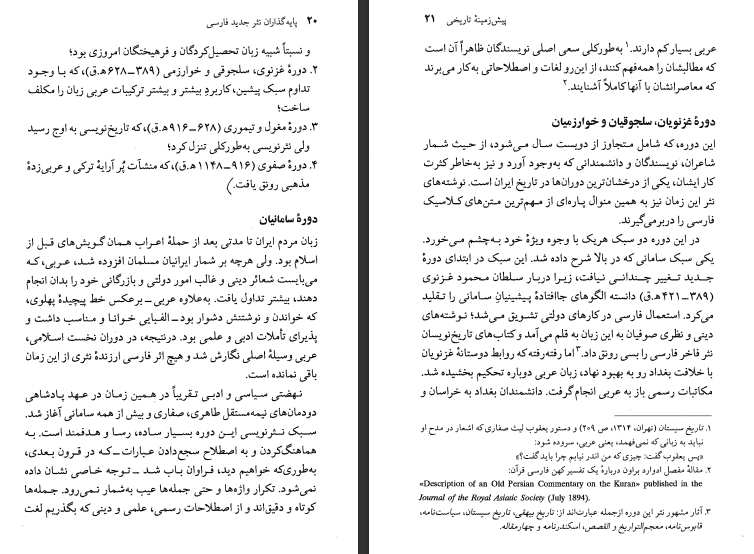 ۲۰ پایه‌گذاران نثر جدید فارسی
و نسبتاً شبیه زبان تحصیل‌کردگان و فرهیختگان امروزی بود؛
۲. دورهٔ غزنوی، سلجوقی و خوارزمی (۳۸۹ــ۶۲۸ ه‍.ق)، که با وجود
تداوم سبک پیشین، کاربردِ بیشتر و بیشتر ترکیبات عربی زبان را مکلف
ساخت؛
۳. دورهٔ مغول و تیموری (۶۲۸ــ۹۱۶ ه‍.ق)، که تاریخ‌نویسی به اوج رسید
ولی نثرنویسی به‌طورکلی تنزل کرد؛
۴. دورهٔ صفوی (۹۱۶ــ۱۱۴۸ ه‍.ق)، که منشآت پُر آرایهٔ ترکی و عربی‌زدهٔ
مذهبی رونق یافت.
دورهٔ سامانیان
زبان مردم ایران تا مدتی بعد از حملهٔ اعراب همان گویش‌های قبل از
اسلام بود. ولی هرچه بر شمار ایرانیان مسلمان افزوده شد، عربی، که
می‌بایست شعائر دینی و غالب امور دولتی و بازرگانی خود را بدان انجام
دهند، بیشتر تداول یافت. به‌علاوه عربی ــ برعکس خط پیچیدهٔ پهلوی،
که خواندن و نوشتنش دشوار بود ــ الفبایی خوانا و مناسب داشت و
پذیرای تأملات ادبی و علمی بود. درنتیجه، در دوران نخست اسلامی،
عربی وسیلهٔ اصلی نگارش شد و هیچ اثر فارسی ارزندهٔ نثری از این زمان
باقی نمانده است.
نهضتی سیاسی و ادبی تقریباً در همین زمان در عهد پادشاهی
دودمان‌های نیمه‌مستقل طاهری، صفاری و بیش از همه سامانی آغاز شد.
سبک نثرنویسی این دوره بسیار ساده، رسا و هدفمند است. به
هماهنگ‌کردن و به اصطلاح سجع‌دادن عبارات ــ که در قرون بعدی،
به‌طوری‌که خواهیم دید، فراوان باب شد ــ توجه خاصی نشان داده
نمی‌شود. تکرار واژه‌ها و حتی جمله‌ها عیب به‌شمار نمی‌رود. جمله‌ها
کوتاه و دقیق‌اند و از اصطلاحات رسمی، علمی و دینی که بگذریم لغت
پیش‌زمینهٔ تاریخی ۲۱
عربی بسیار کم دارند.۱ به‌طورکلی سعی اصلی نویسندگان ظاهراً آن است
که مطالبشان را همه‌فهم کنند، از این‌رو لغات و اصطلاحاتی به‌کار می‌برند
که معاصرانشان با آنها کاملاً آشنایند.۲
دورهٔ غزنویان، سلجوقیان و خوارزمیان
این دوره، که شامل متجاوز از دویست سال می‌شود، از حیث شمار
شاعران، نویسندگان و دانشمندانی که به‌وجود آورد و نیز به‌خاطر کثرت
کار ایشان، یکی از درخشان‌ترین دوران‌ها در تاریخ ایران است. نوشته‌های
نثر این زمان نیز به همین منوال پاره‌ای از مهم‌ترین متن‌های کلاسیک
فارسی را دربرمی‌گیرند.
در این دوره دو سبک هریک با وجوه ویژهٔ خود به‌چشم می‌خورد.
یکی سبک سامانی که در بالا شرح داده شد. این سبک در ابتدای دورهٔ
جدید تغییر چندانی نیافت، زیرا دربار سلطان محمود غزنوی
(۳۸۹ــ۴۲۱ ه‍.ق) دانسته الگوهای جاافتادهٔ پیشینیان سامانی را تقلید
می‌کرد. استعمال فارسی در کارهای دولتی تشویق می‌شد؛ نوشته‌های
دینی و نظری صوفیان به این زبان به قلم می‌آمد و کتاب‌های تاریخ‌نویسان
نثر فاخر فارسی را بسی رونق داد.۳ اما رفته‌رفته که روابط دوستانهٔ غزنویان
با خلافت بغداد رو به بهبود نهاد، زبان عربی دوباره تحکیم بخشیده شد.
مکاتبات رسمی باز به عربی انجام گرفت. دانشمندان بغداد به خراسان و
۱. تاریخ سیستان (تهران، ۱۳۱۴، ص ۲۰۹) و دستور یعقوب لیث صفاری که اشعار در مدح او
نباید به زبانی که نمی‌فهمد، یعنی عربی، سروده شود:
«پس یعقوب گفت: چیزی که من اندر نیابم چرا باید گفت؟»
۲. مقالهٔ مفصل ادوارد براون دربارهٔ یک تفسیر کهن فارسی قرآن:
«Description of an Old Persian Commentary on the Kuran» published in the
Journal of the Royal Asiatic Society (July 1894).
۳. آثار مشهور نثر این دوره ازجمله عبارت‌اند از: تاریخ بیهقی، تاریخ سیستان، سیاست‌نامه،
قابوس‌نامه، معجم‌التواریخ و القصص، اسکندرنامه و چهارمقاله.